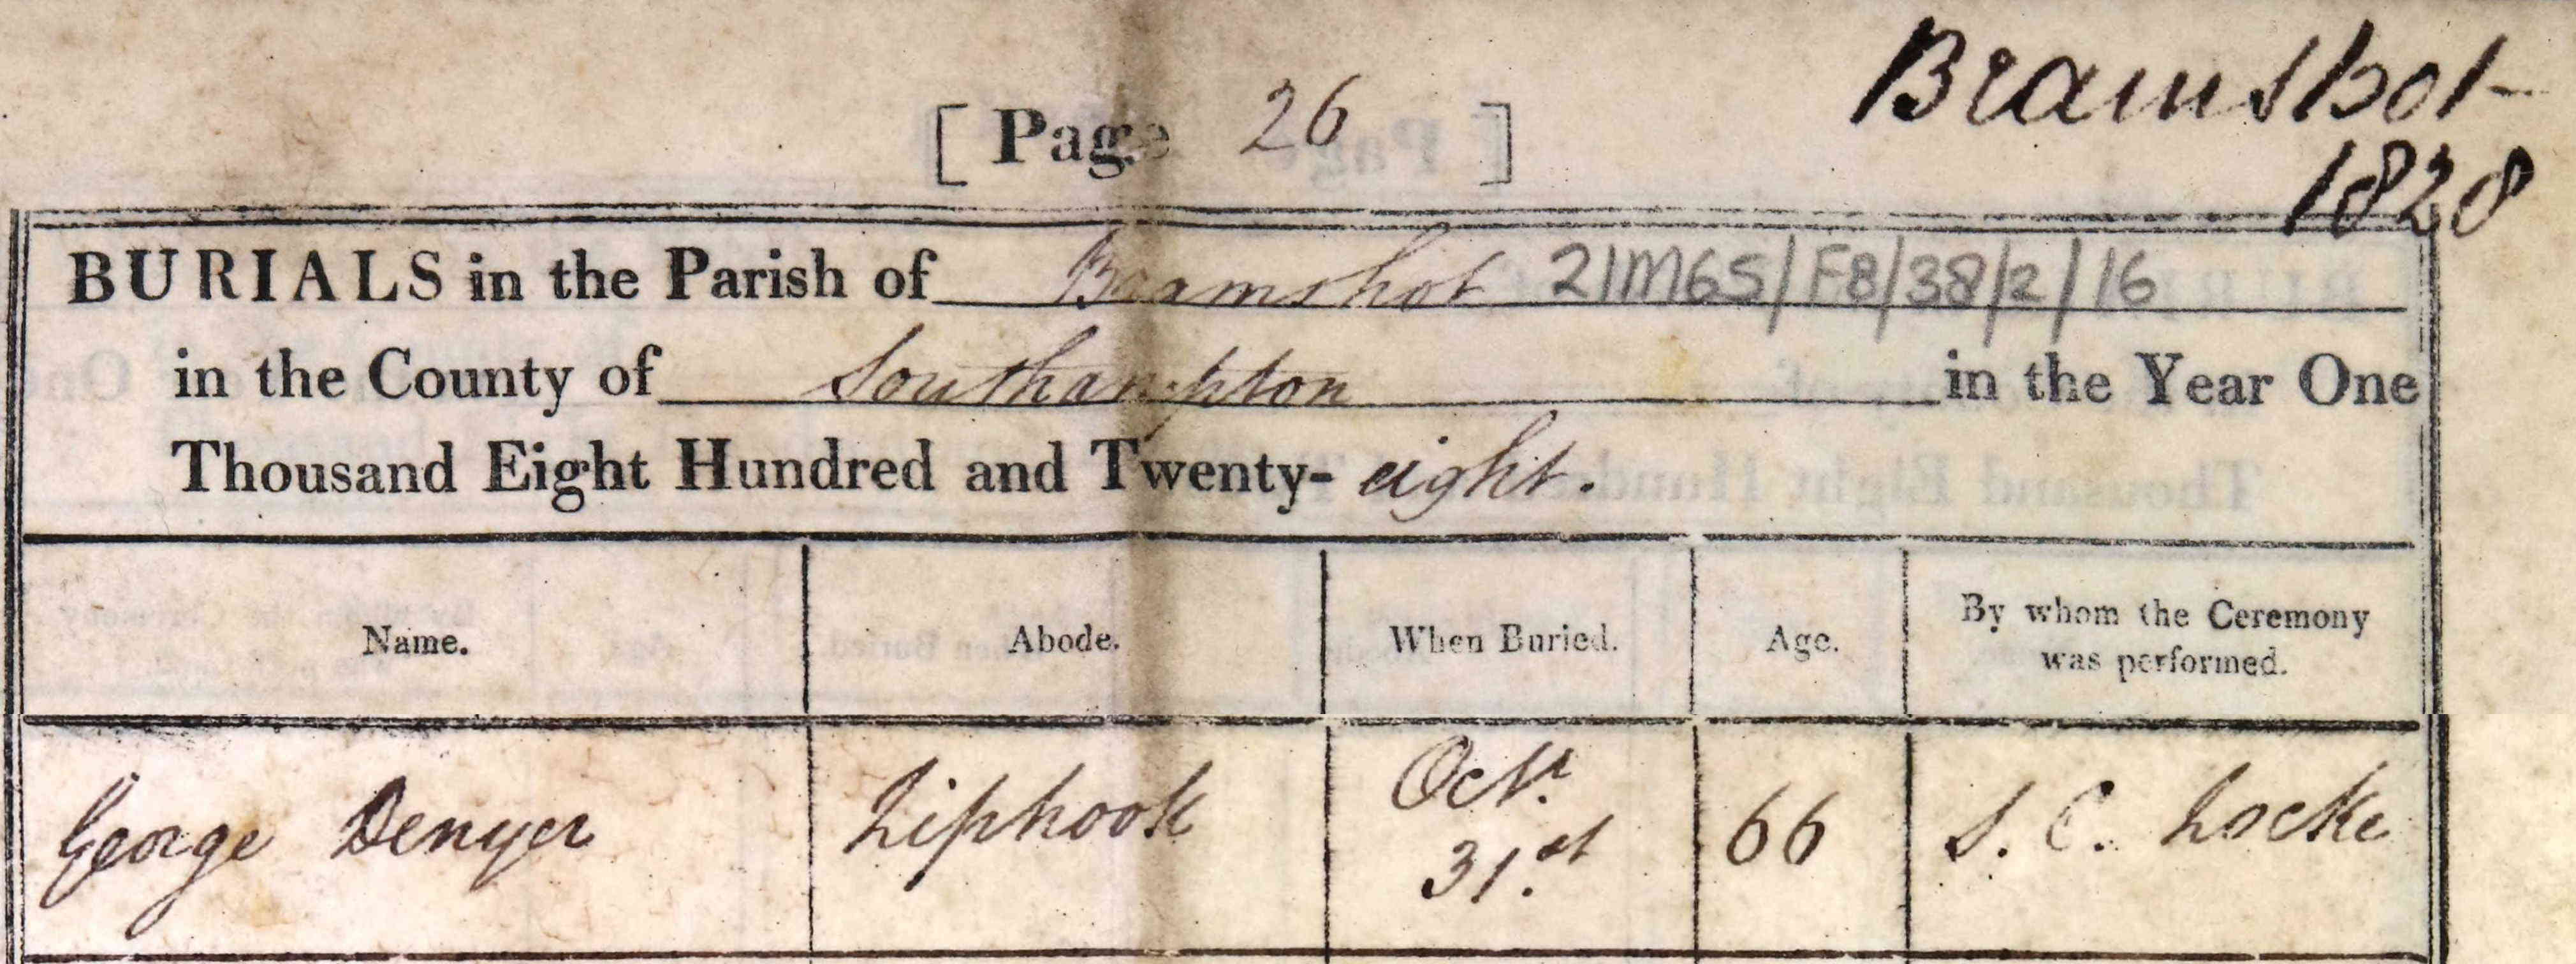 Bramshot
1828
[ Page 26 ]
BURIALS in the Parish of Bramshot 21M65/F8/38/2/16
in the County of Southampton in the Year One
Thousand Eight Hundred and Twenty- eight.
Name. Abode. When Buried. Age. By whom the Ceremony was performed.
George Denyer Liphook Octr. 31.st 66 S. C. Locke